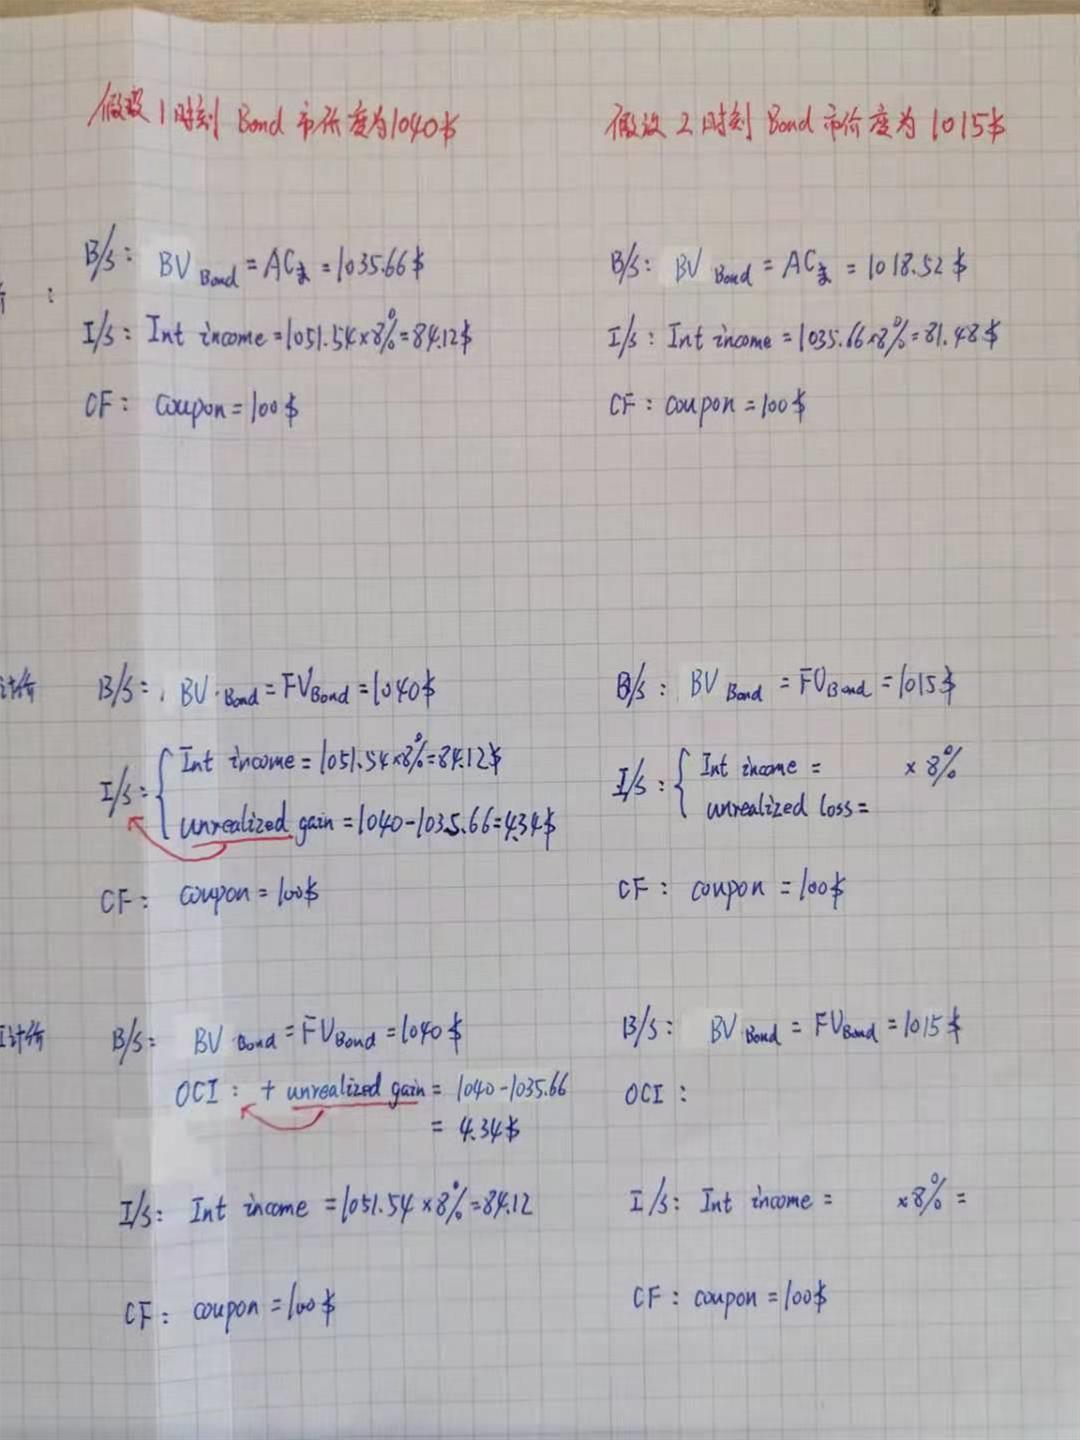 假设1时刻 Bond 市价度为1040$
假设2时刻 Bond 市价度为1015$
B/S: BV Bond = AC末 = 1035.66$
I/S: Int income = 1051.54×8% = 84.12$
CF: coupon = 100$
B/S: BV Bond = AC末 = 1018.52$
I/S: Int income = 1035.66×8% = 81.48$
CF: coupon = 100$
计价
B/S: BV Bond = FV Bond = 1040$
I/S: { Int income = 1051.54×8% = 84.12$
unrealized gain = 1040-1035.66 = 4.34$
CF: coupon = 100$
B/S: BV Bond = FV Bond = 1015$
I/S: { Int income = ×8%
unrealized loss =
CF: coupon = 100$
I计价
B/S: BV Bond = FV Bond = 1040$
OCI: + unrealized gain = 1040-1035.66
= 4.34$
I/S: Int income = 1051.54×8% = 84.12
CF: coupon = 100$
B/S: BV Bond = FV Bond = 1015$
OCI:
I/S: Int income = ×8% =
CF: coupon = 100$